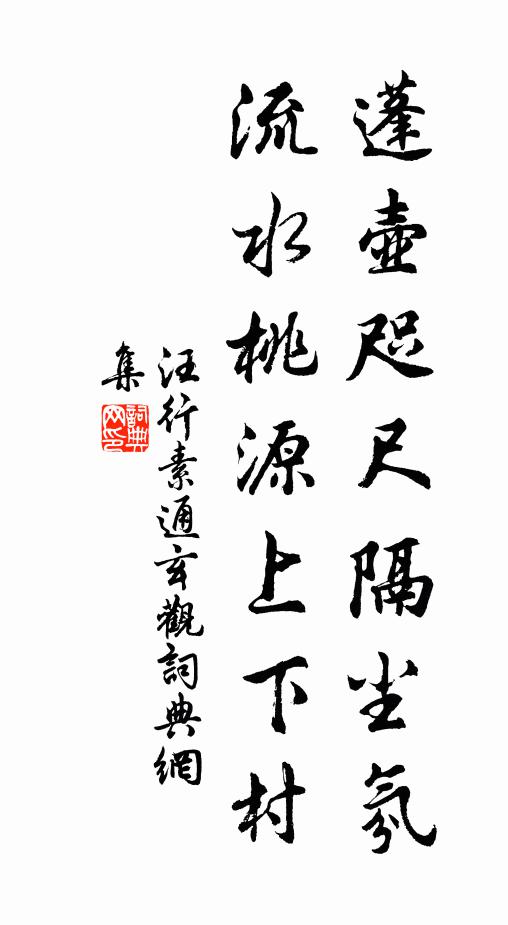 蓬壺咫尺隔尘氛
流水桃源上下村
汪行素通玄觀詞典網
集
詞典
网印